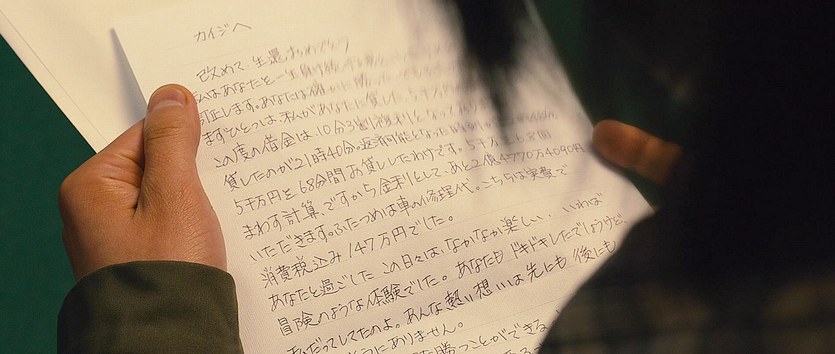 カイジへ
改めて、生還おめでとう
私はあなたを一生負け
訂正します。あなたは確かに勝っ
まずひとつは、私があなたに貸した、5千万
この度の借金は、10分3割複利となって
貸したのが21時40分。返済可能となった
5千万円を68分間お貸ししたわけです。5千万
まわす計算、ですから金利として、あと2億4770万4090円
いただきます。ふたつめは車の修理代。こちらは実費で
消費税込み147万円でした。
あなたと過ごしたこの日々は、なかなか楽しい、いわば
冒険のような体験でした。あなたもドキドキしたでしょうけど、
私だってしてたのよ。あんな熱い想いは先にも後にも
ようにありません。
勝つことができな